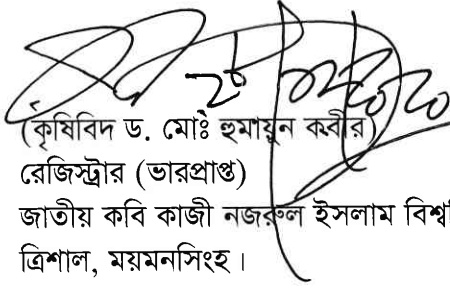 (কৃষিবিদ ড. মোঃ হুমায়ুন কবীর)
রেজিস্ট্রার (ভারপ্রাপ্ত)
জাতীয় কবি কাজী নজরুল ইসলাম
ত্রিশাল, ময়মনসিংহ।